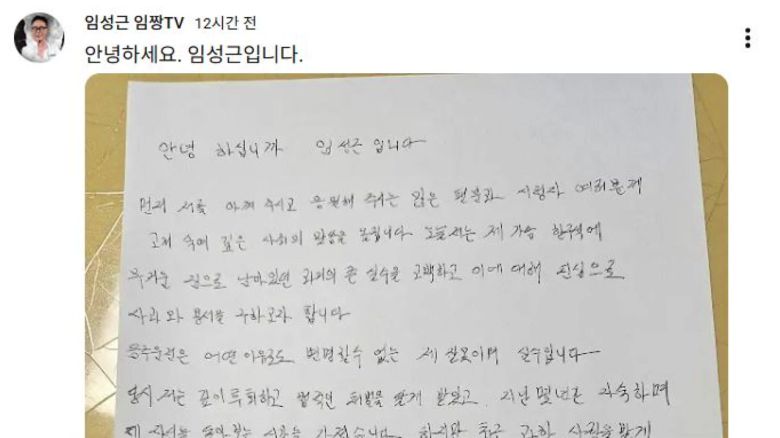 임성근 임짱TV 12시간 전
안녕하세요. 임성근입니다.
안녕 하십니까 임성근 입니다
먼저 저를 아껴 주시고 응원해 주시는 많은 팬분과 시청자 여러분께
고개 숙여 깊은 사죄의 말씀을 올립니다 오늘 저는 제 가슴 한구석에
무거운 짐으로 남아있던 과거의 큰 실수를 고백하고 이에 대해 진심으로
사과 와 용서를 구하고자 합니다
음주운전은 어떤 이유로도 변명할수 없는 제 잘못이며 실수입니다
당시 저는 깊이 후회하고 법적인 처벌을 달게 받았고 지난 몇년간 자숙하며
제 자신을 돌아보는 시간을 가졌습니다